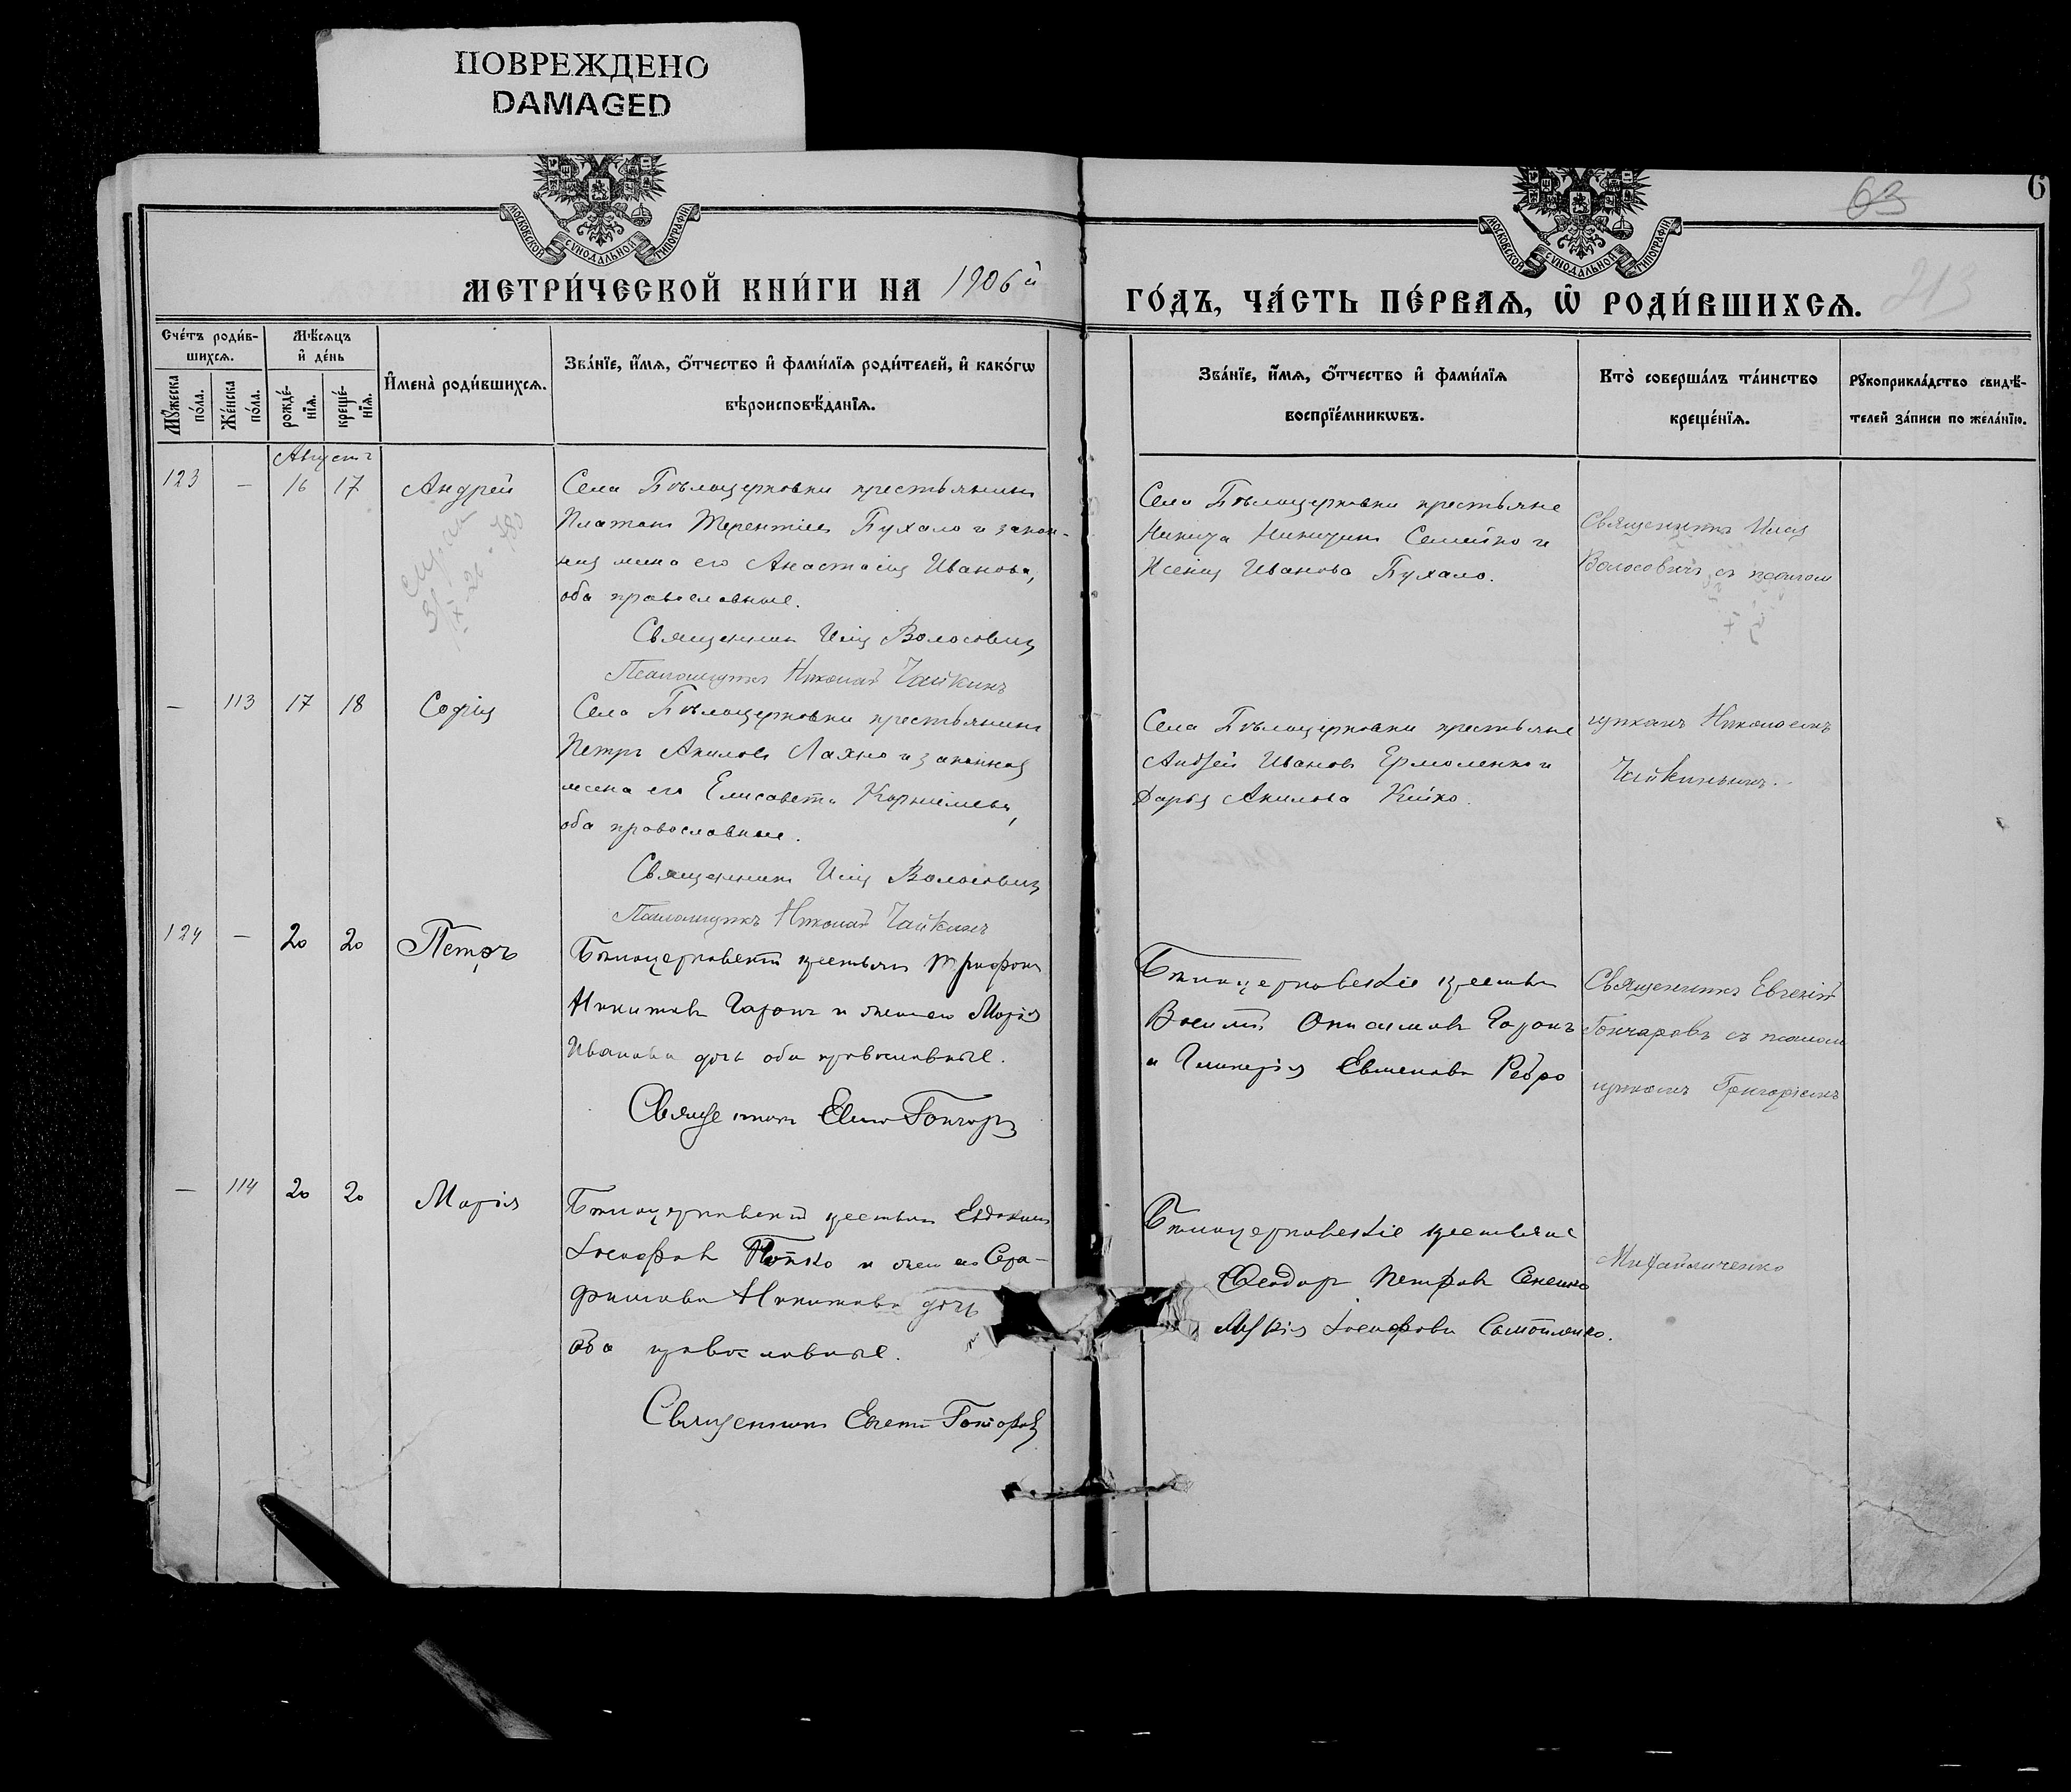 ПОВРЕЖДЕНО
DAMAGED
МОСКОВСКОЙ СѴНОДАЛЬНОЙ ТИПОГРАФІИ.
МОСКОВСКОЙ СѴНОДАЛЬНОЙ ТИПОГРАФІИ.
63
6
213
МЕТРИ́ЧЕСКОЙ КНИ́ГИ НА 1906й
ГО́ДЪ, ЧА́СТЬ ПЕ́РВАѦ, Ѡ҆ РОДИ́ВШИХСѦ.
Сче́тъ роди́в-
шихсѧ.
Мꙋ́жеска по́ла.
Же́нска по́ла.
Мѣ́сѧцъ
и҆ де́нь
рожде́-
нїѧ.
креще́-
нїѧ.
И҆мена̀ роди́вшихсѧ.
Зва́нїе, и҆́мѧ, ѻ҆́тчество и҆ фами́лїѧ роди́телей, и҆ како́гѡ
вѣроисповѣ́данїѧ.
Зва́нїе, и҆́мѧ, ѻ҆́тчество и҆ фами́лїѧ
воспрїе́мникѡвъ.
Кто̀ соверша́лъ та́инство
креще́нїѧ.
Рꙋкоприкла́дство свидѣ́-
телей за́писи по жела́нїю.
Августъ
123 — 16 17 Андрей
Села Бѣлоцерковки крестьянинъ
Платонъ Терентіевъ Бухало и закон-
ная жена его Анастасія Иванова,
оба православные.
Священникъ Илія Волосовичъ
Псаломщикъ Николай Чайкинъ
Села Бѣлоцерковки крестьяне
Никита Никитинъ Семейко и
Ксенія Иванова Бухало.
Священникъ Илія
Волосовичъ съ псалом
— 113 17 18 Софія
Села Бѣлоцерковки крестьянинъ
Петръ Акиловъ Лахно и законная
жена его Елисавета Корнилиева,
оба православные.
Священникъ Илія Волосовичъ
Псаломщикъ Николай Чайкинъ
Села Бѣлоцерковки крестьяне
Андрей Ивановъ Ермоленко и
Дарья Акилова Кейко.
щикомъ Николаемъ
Чайкинымъ.
124 — 20 20 Петръ
Бѣлоцерковскій крестьян Трифонъ
Никитовъ Гаронъ и Марія
Иванова дочь оба православные.
Священникъ Гончаровъ
Бѣлоцерковскіе крестьян
Василій Онисимовъ Гаронъ
и Гликерія Ребро
Священникъ Евгеній
Гончаровъ съ псалом
щикомъ Григоріемъ
— 114 20 20 Марія
Бѣлоцерковскій крестьян Евдокимъ
Іосифовъ и жен его Сера-
фимова Никитова дочь
оба православные.
Священникъ Евгеній Гончаровъ
Бѣлоцерковскіе крестьяне
Феодоръ Петровъ Сененко
Марія Іосифова Самойленко.
Михайличенко